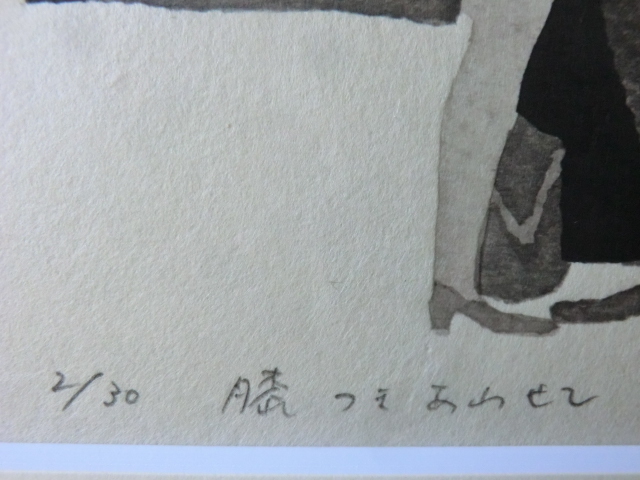 2/30 膝 つき あわせて